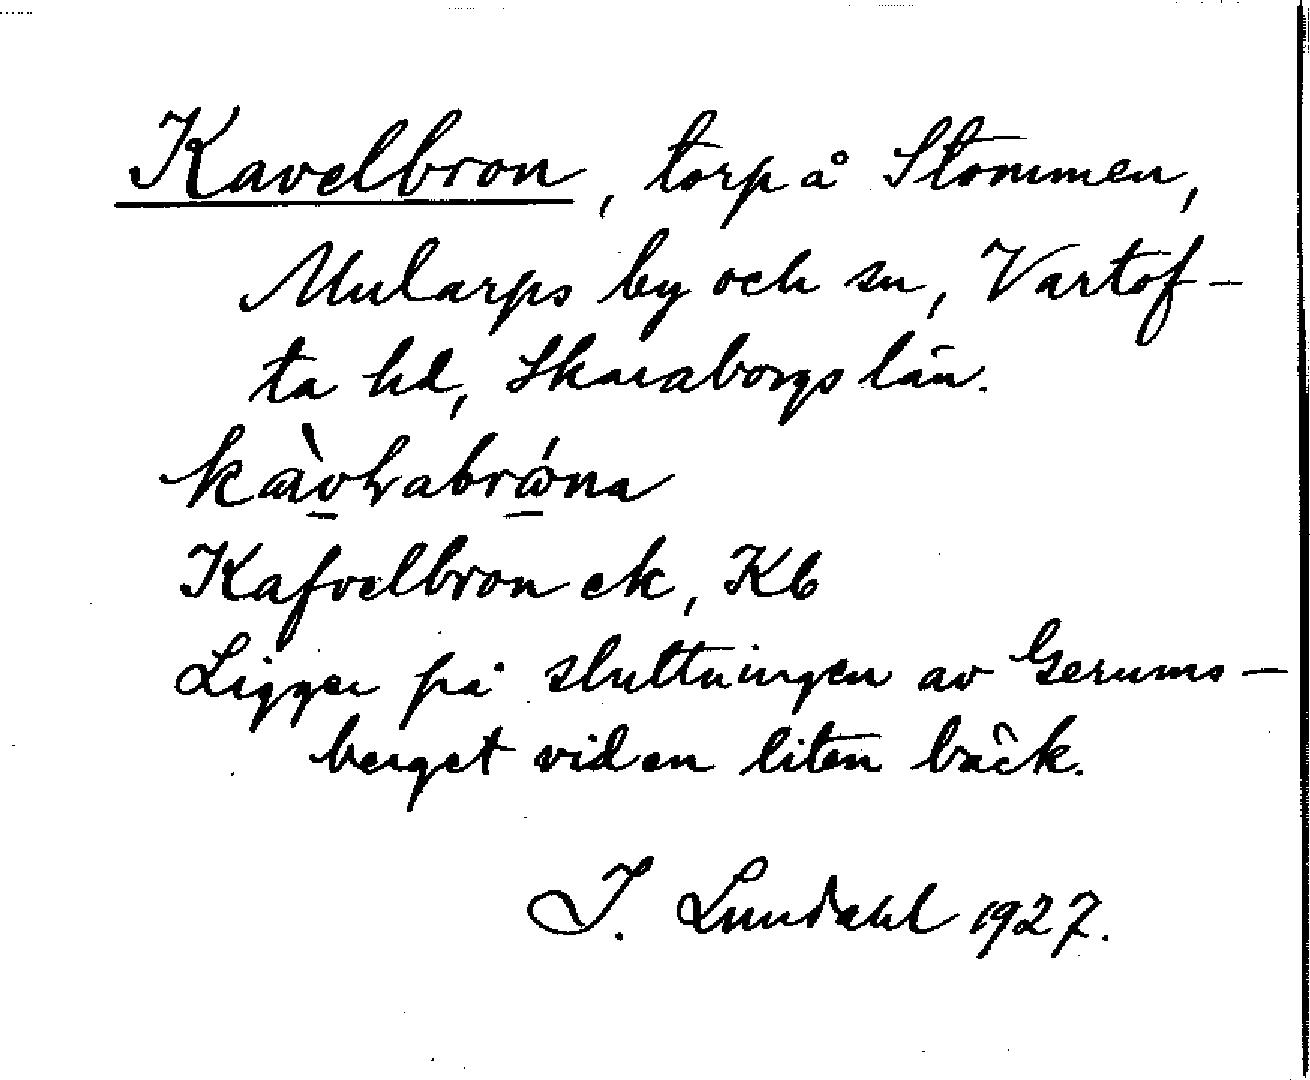 Kavelbron, torp å Stommen,
Mularps by och sn, Vartof-
ta hd, Skaraborgs län.
Kafvelbron ek, Kb
Ligger på sluttningen av Gerums-
berget vid en liten bäck.
I. Lundahl 1927.